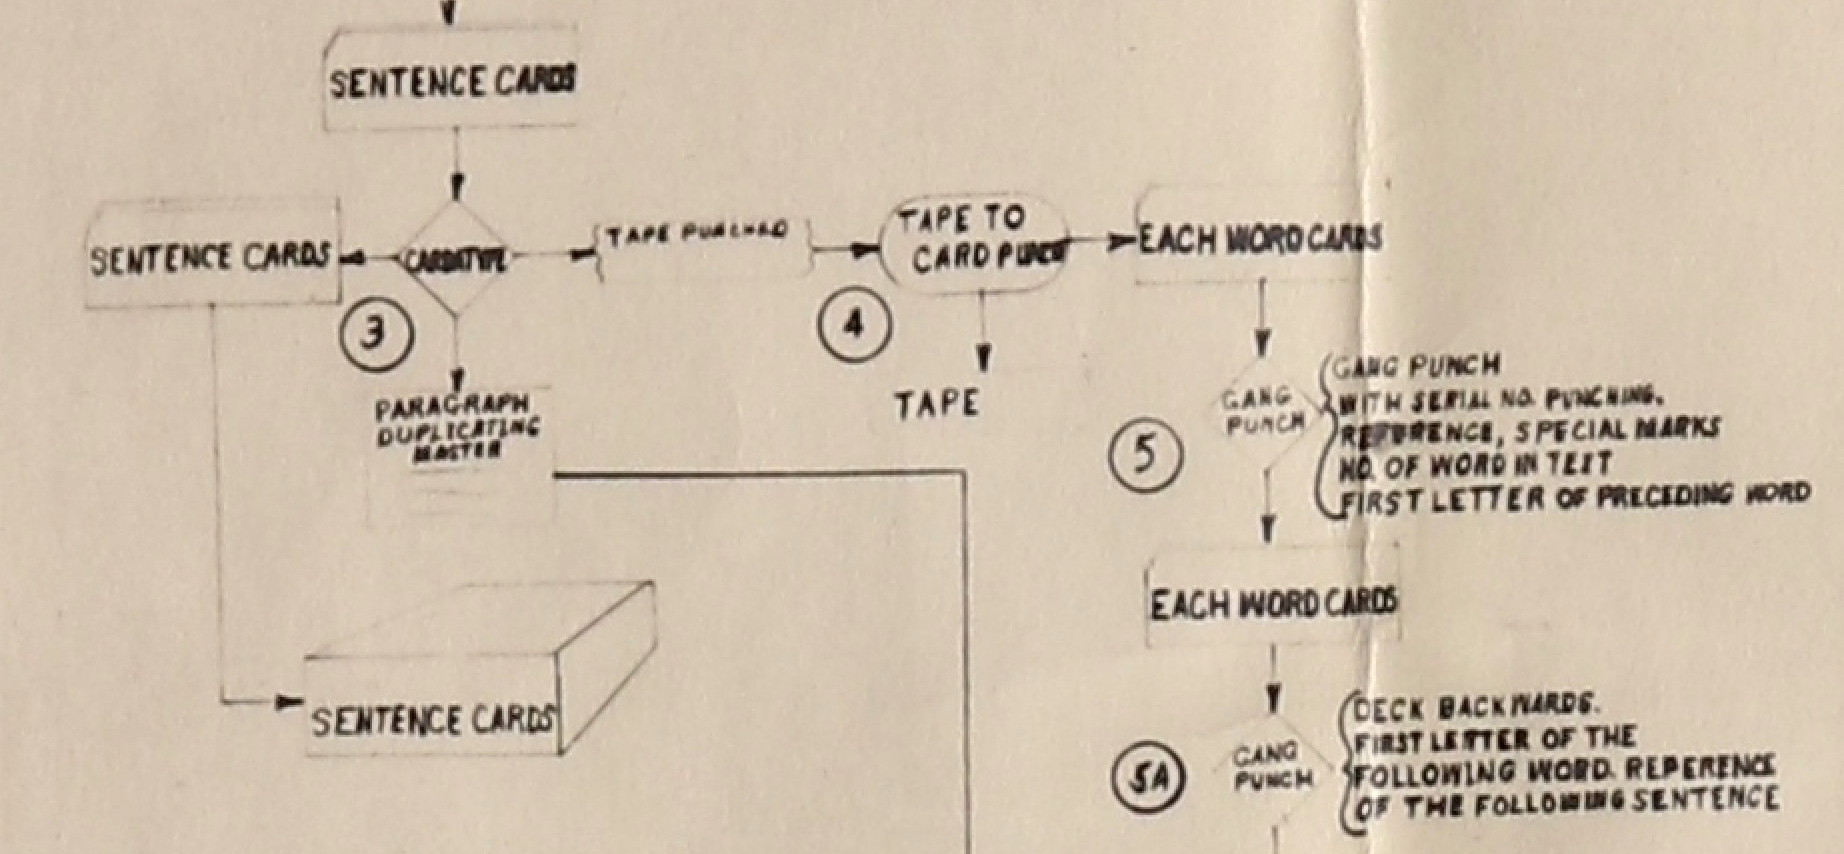 SENTENCE CARDS
SENTENCE CARDS
CARDATYPE
TAPE PUNCHED
TAPE TO
CARD PUNCH
EACH WORD CARDS
3
4
TAPE
PARAGRAPH
DUPLICATING
MASTER
GANG
PUNCH
5
GANG PUNCH
WITH SERIAL NO. PUNCHING.
REFERENCE, SPECIAL MARKS
NO. OF WORD IN TEXT
FIRST LETTER OF PRECEDING WORD
EACH WORD CARDS
SENTENCE CARDS
5A
GANG
PUNCH
DECK BACKWARDS.
FIRST LETTER OF THE
FOLLOWING WORD. REFERENCE
OF THE FOLLOWING SENTENCE